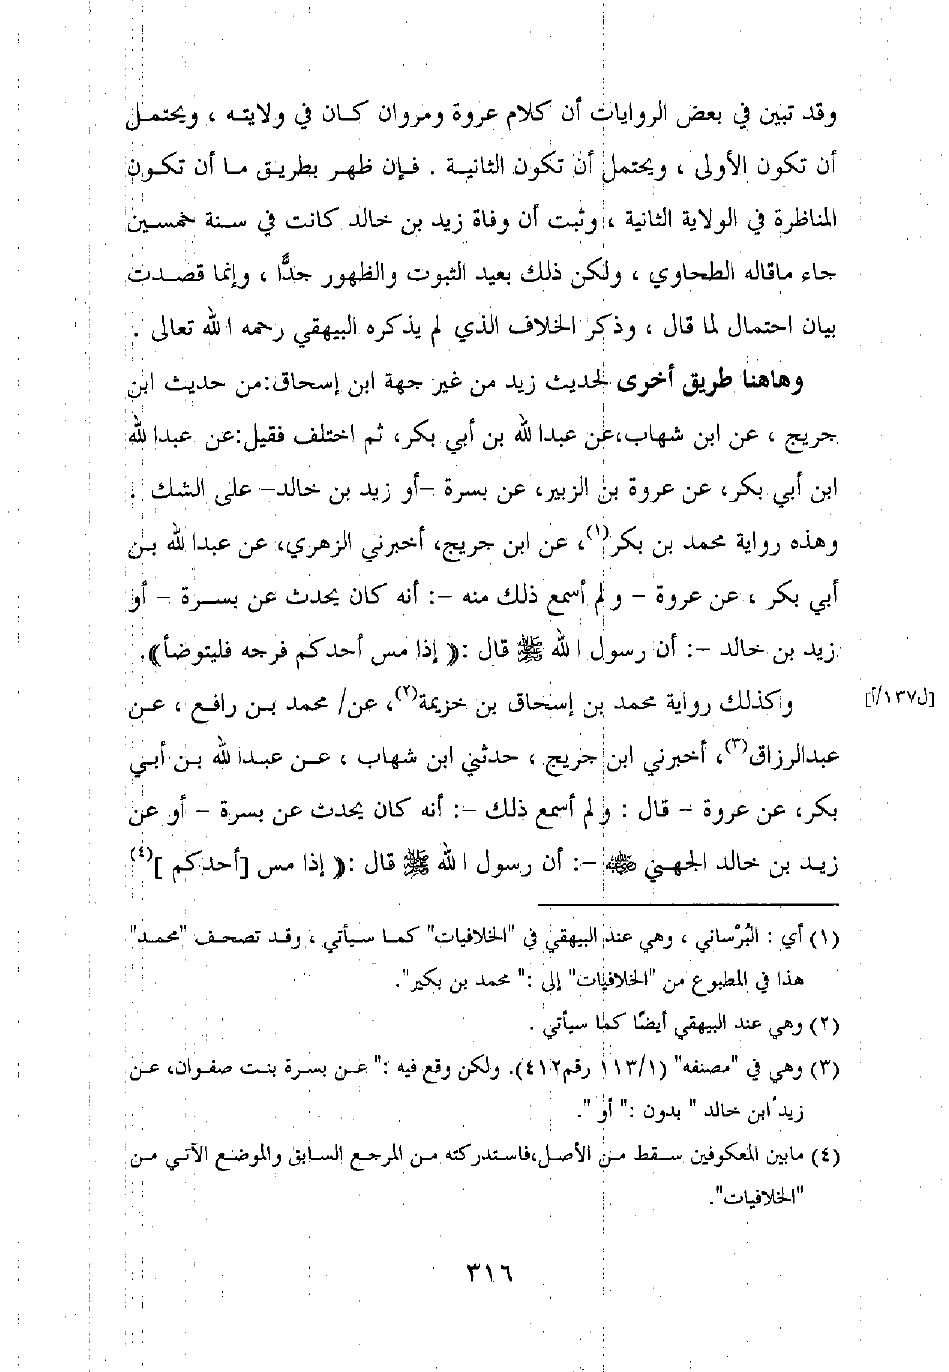 وقد تبين في بعض الروايات أن كلام عروة ومروان كان في ولايته ، ويحتمل
أن تكون الأولى ، ويحتمل أن تكون الثانية . فإن ظهر بطريق ما أن تكون
المناظرة في الولاية الثانية ، وثبت أن وفاة زيد بن خالد كانت في سنة خمسين
جاء ماقاله الطحاوي ، ولكن ذلك بعيد الثبوت والظهور جدًّا ، وإنما قصدت
بيان احتمال لما قال ، وذكر الخلاف الذي لم يذكره البيهقي رحمه الله تعالى .
وهاهنا طريق أخرى لحديث زيد من غير جهة ابن إسحاق:من حديث ابن
جريج ، عن ابن شهاب،عن عبدالله بن أبي بكر، ثم اختلف فقيل:عن عبدالله
ابن أبي بكر، عن عروة بن الزبير، عن بسرة -أو زيد بن خالد- على الشك .
وهذه رواية محمد بن بكر(١)، عن ابن جريج، أخبرني الزهري، عن عبدالله بن
أبي بكر ، عن عروة - ولم أسمع ذلك منه -: أنه كان يحدث عن بسرة - أو
زيد بن خالد -: أن رسول الله ﷺ قال :(( إذا مس أحدكم فرجه فليتوضأ)).
وكذلك رواية محمد بن إسحاق بن خزيمة(٢)، عن/ محمد بن رافع ، عن
[ل١٣٧/أ]
عبدالرزاق(٣)، أخبرني ابن جريج ، حدثني ابن شهاب ، عن عبدالله بن أبي
بكر، عن عروة - قال : ولم أسمع ذلك -: أنه كان يحدث عن بسرة - أو عن
زيد بن خالد الجهني ﷺ -: أن رسول الله ﷺ قال :(( إذا مس [أحدكم ](٤)
(١) أي : البُرْساني ، وهي عند البيهقي في "الخلافيات" كما سيأتي ، وقد تصحف "محمد"
هذا في المطبوع من "الخلافيات" إلى :" محمد بن بكير".
(٢) وهي عند البيهقي أيضًا كما سيأتي .
(٣) وهي في "مصنفه" (١١٣/١ رقم٤١٢). ولكن وقع فيه :" عن بسرة بنت صفوان، عن
زيد ابن خالد " بدون :" أو ".
(٤) مابين المعكوفين سقط من الأصل،فاستدركته من المرجع السابق والموضع الآتي من
"الخلافيات".
٣١٦